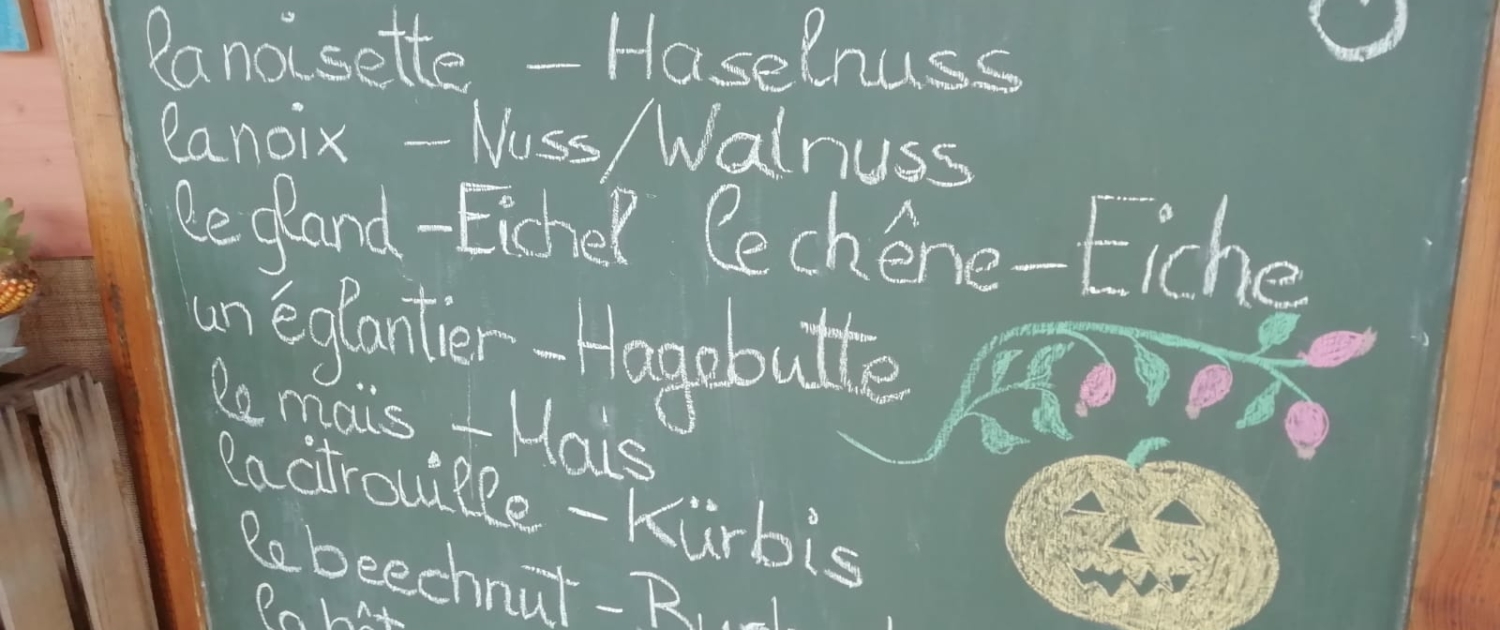 la noisette – Haselnuss
la noix – Nuss/Walnuss
le gland – Eichel le chêne – Eiche
un églantier – Hagebutte
le maïs – Mais
la citrouille – Kürbis
le beechnut –
la